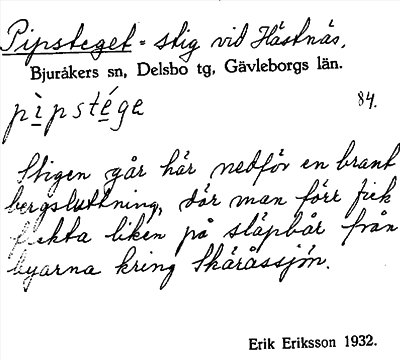 Pipsteget = stig vid Hästnäs.
Bjuråkers sn, Delsbo tg, Gävleborgs län.
pìpstége
84.
Stigen går här nedför en brant
bergsluttning, där man förr fick
frakta liken på släpbår från
byarna kring Skäråssjön.
Erik Eriksson 1932.